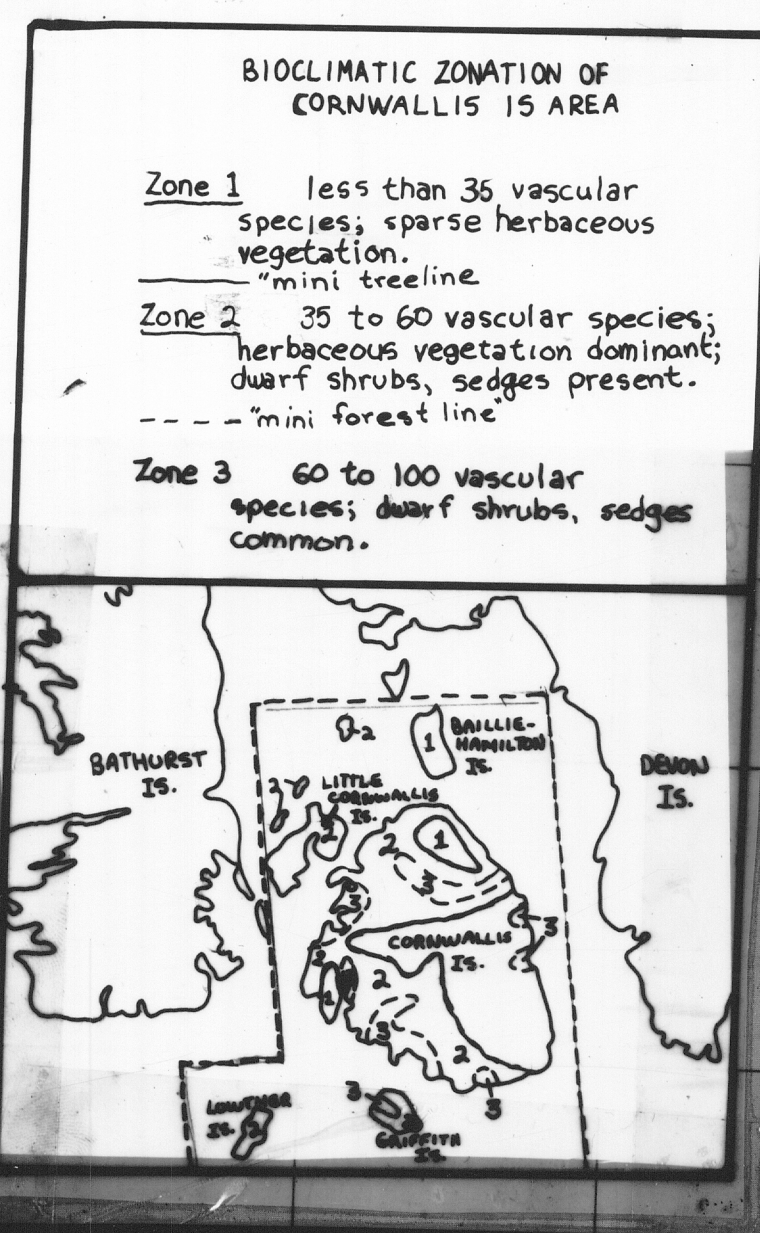 BIOCLIMATIC ZONATION OF
CORNWALLIS IS AREA
Zone 1 less than 35 vascular
species; sparse herbaceous
vegetation.
"mini treeline
Zone 2 35 to 60 vascular species;
herbaceous vegetation dominant;
dwarf shrubs, sedges present.
"mini forest line"
Zone 3 60 to 100 vascular
species; dwarf shrubs, sedges
common.
2
1
BAILLIE-
HAMILTON
IS.
BATHURST
IS.
DEVON
IS.
2
LITTLE
CORNWALLIS
IS.
2
2
1
3
3
3
CORNWALLIS
IS.
2
2
1
3
2
3
3
LOWTHER
IS.
2
GRIFFITH
IS.